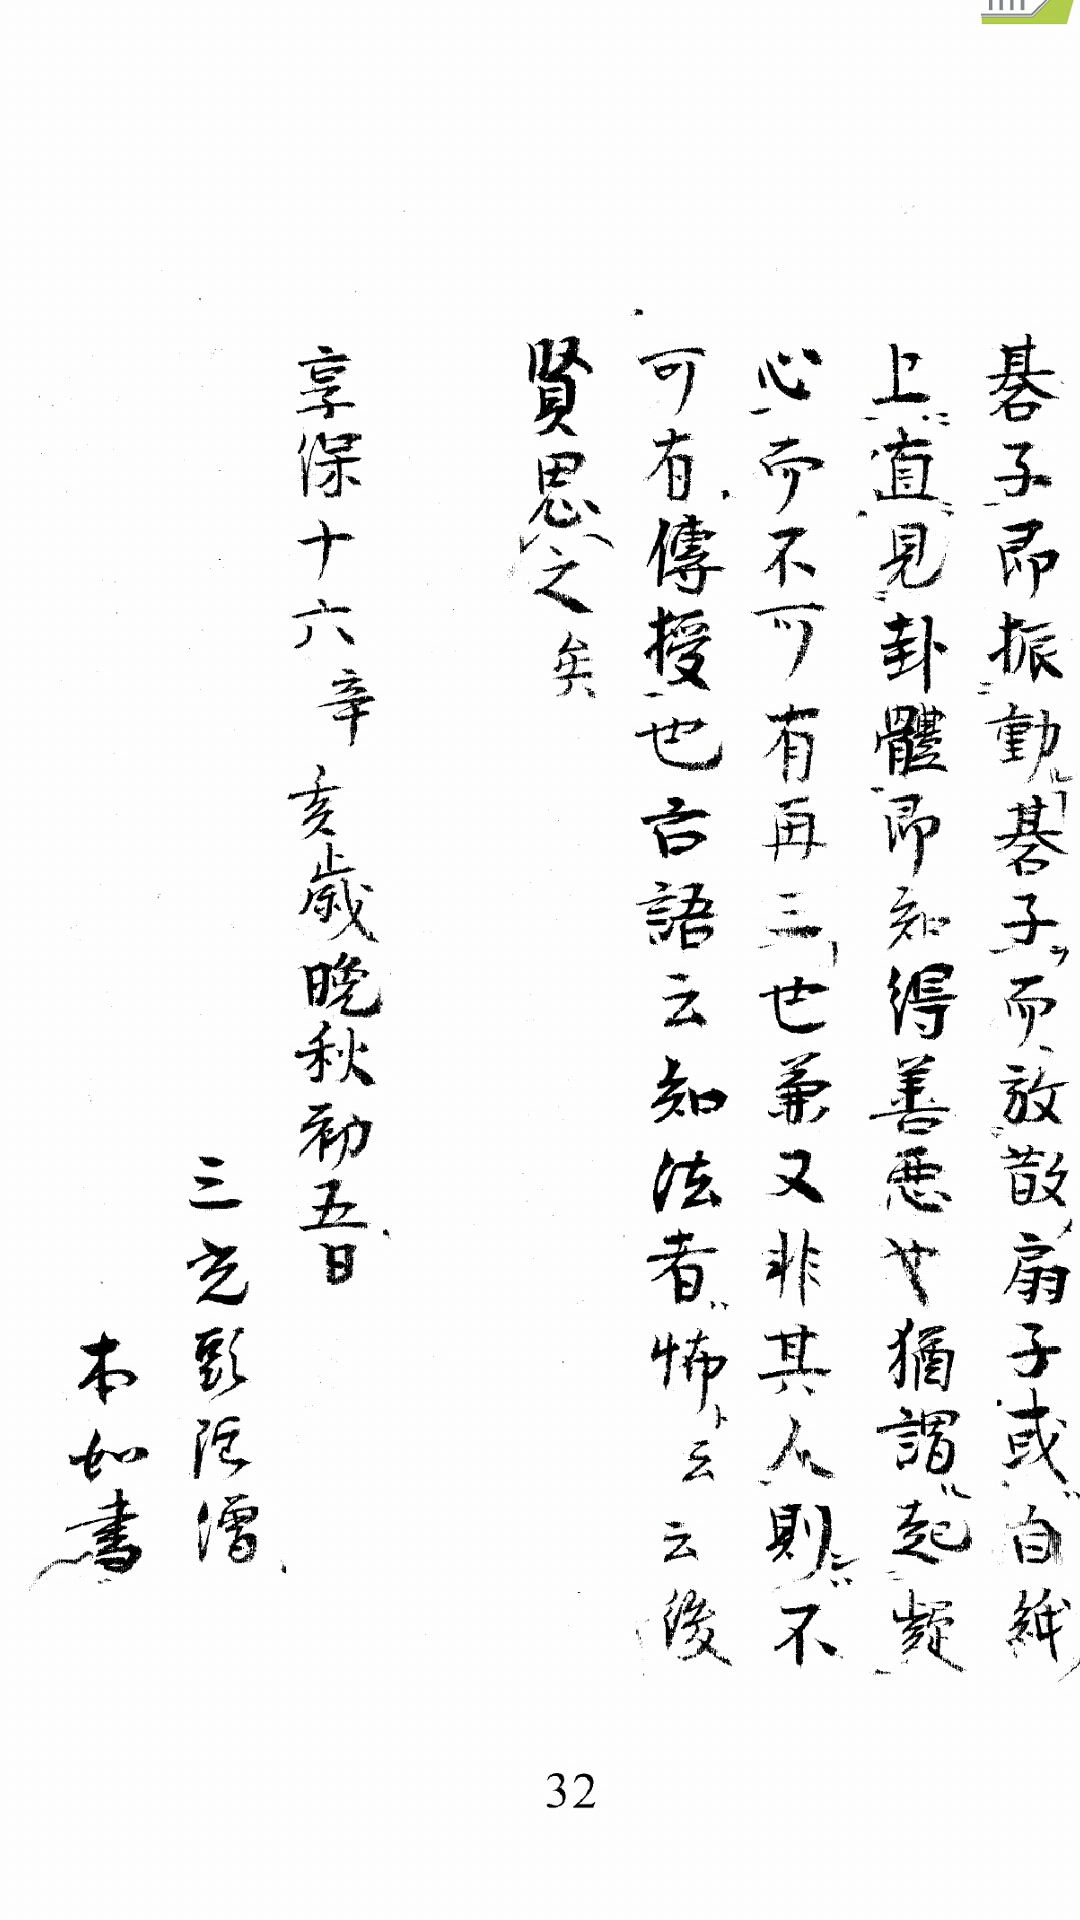 碁子即振動碁子而放散扇子或白紙
上直見卦體即知得善惡也猶謂起疑
心而不可有再三也兼又非其人則不
可有傳授也古語云知法者怖云云後
賢思之矣
享保十六辛亥歲晚秋初五日
三光
本如書
32